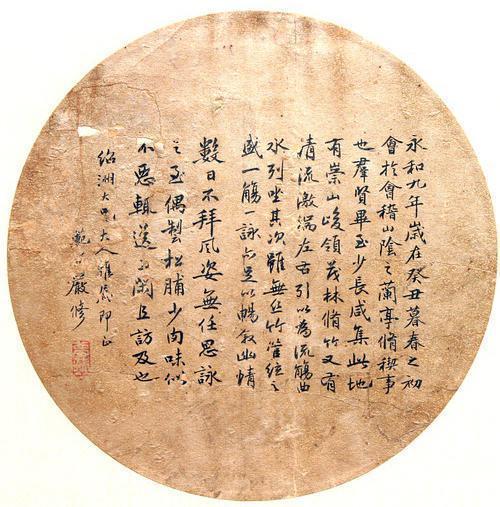 永和九年歲在癸丑暮春之初
會於會稽山陰之蘭亭脩禊事
也羣賢畢至少長咸集此地
有崇山峻領茂林脩竹又有
清流激湍左右引以為流觴曲
水列坐其次雖無絲竹管絃之
盛一觴一詠亦足以暢敘幽情
數日不拜風姿無任思詠
之至偶製松脯少肉味似
不惡輒送上閑且訪及也
紹洲大人雅鑒即正
範孫嚴修